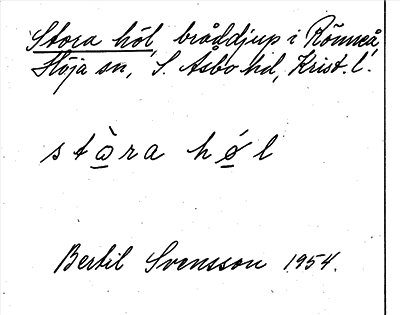 Stora höl, bråddjup i Rönneå
Höja sn, S. Åsbo hd, Krist. l.
stɷ̀ra hǿl
Bertil Svensson 1954.